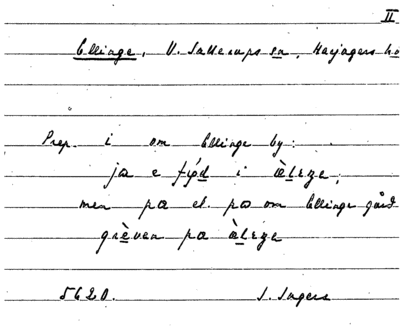 II
Ellinge, V. Sallerups sn, Harjagers hd
Prep. i om Ellinge by:
ja e fǿd i
men pa el. på om Ellinge gård
grèven pa
5620. I. Ingers